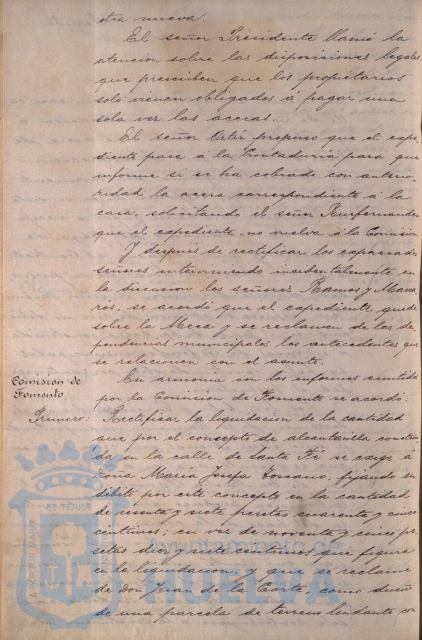 otra nueva.
El señor Presidente llamó la
atencion sobre las disposiciones legales
que prescriben que los propietarios
solo vienen obligados á pagar una
sola vez las aceras.
El señor Ortiz propuso que el expe-
diente pase á la Contaduría para que
informe si se ha cobrado con anterio-
ridad, la acera correspondiente á la
casa, solicitando el señor
que el expediente no vuelva á la Comision
Y despues de rectificar los expresados
señores interviniendo incidentalmente en
la discusion los señores Ramos y
se acordó que el expediente quede
sobre la Mesa y se reclamen de las de-
pendencias municipales los antecedentes que
se relacionen con el asunto.
Comision de
Fomento
En armonia con los informes emitidos
por la Comision de Fomento se acordó:
Primero: Rectificar la liquidacion de la cantidad
que por el concepto de alcantarilla construi-
da en la calle de Santa Fé se exige á
Doña María Josefa fijando su
débito por este concepto en la cantidad
de y siete pesetas cuarenta y cinco
centimos; en vez de noventa y cinco pe-
setas diez y siete centimos que figura
en la liquidacion y que se reclame
de Don Juan de la Corte, como dueño
de una parcela de terreno lindante con
HUELVA